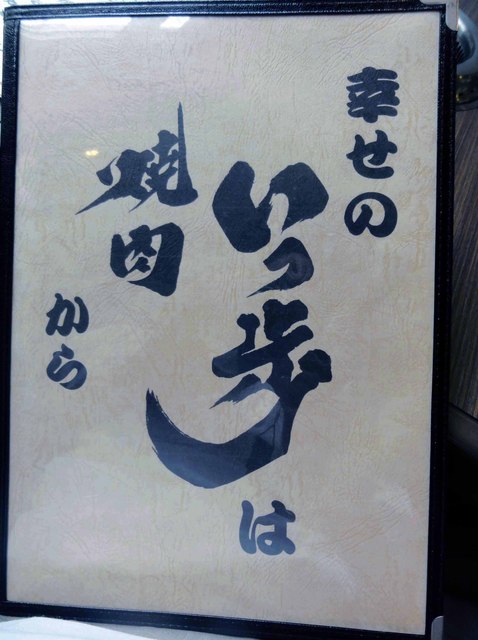 幸せの
いっ歩は
焼肉
から